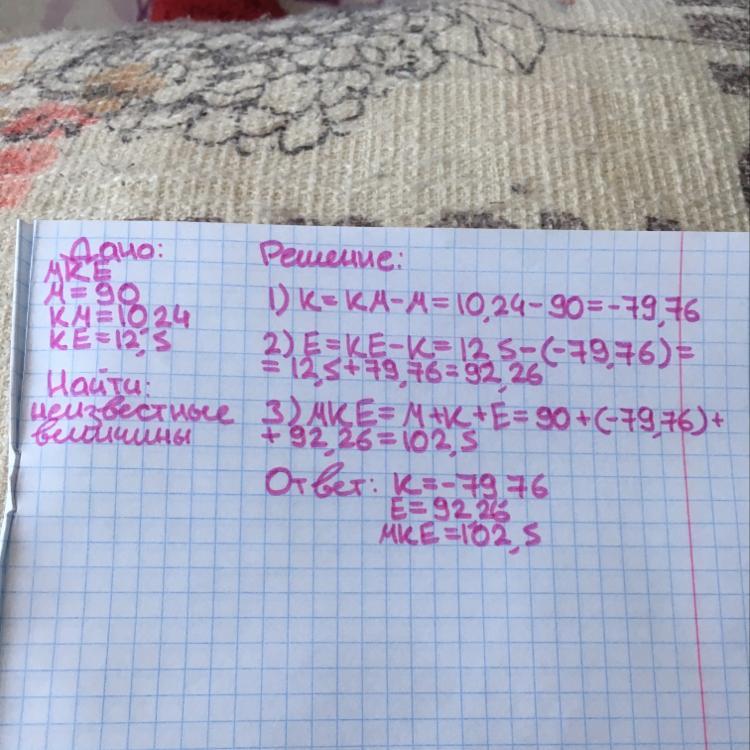 Дано:
МКЕ
М=90
КМ=10,24
КЕ=12,5
Найти:
неизвестные
величины
Решение:
1) К=КМ-М=10,24-90=-79,76
2) Е=КЕ-К=12,5-(-79,76)=
=12,5+79,76=92,26
3) МКЕ=М+К+Е=90+(-79,76)+
+92,26=102,5
Ответ: К=-79,76
Е=92,26
МКЕ=102,5